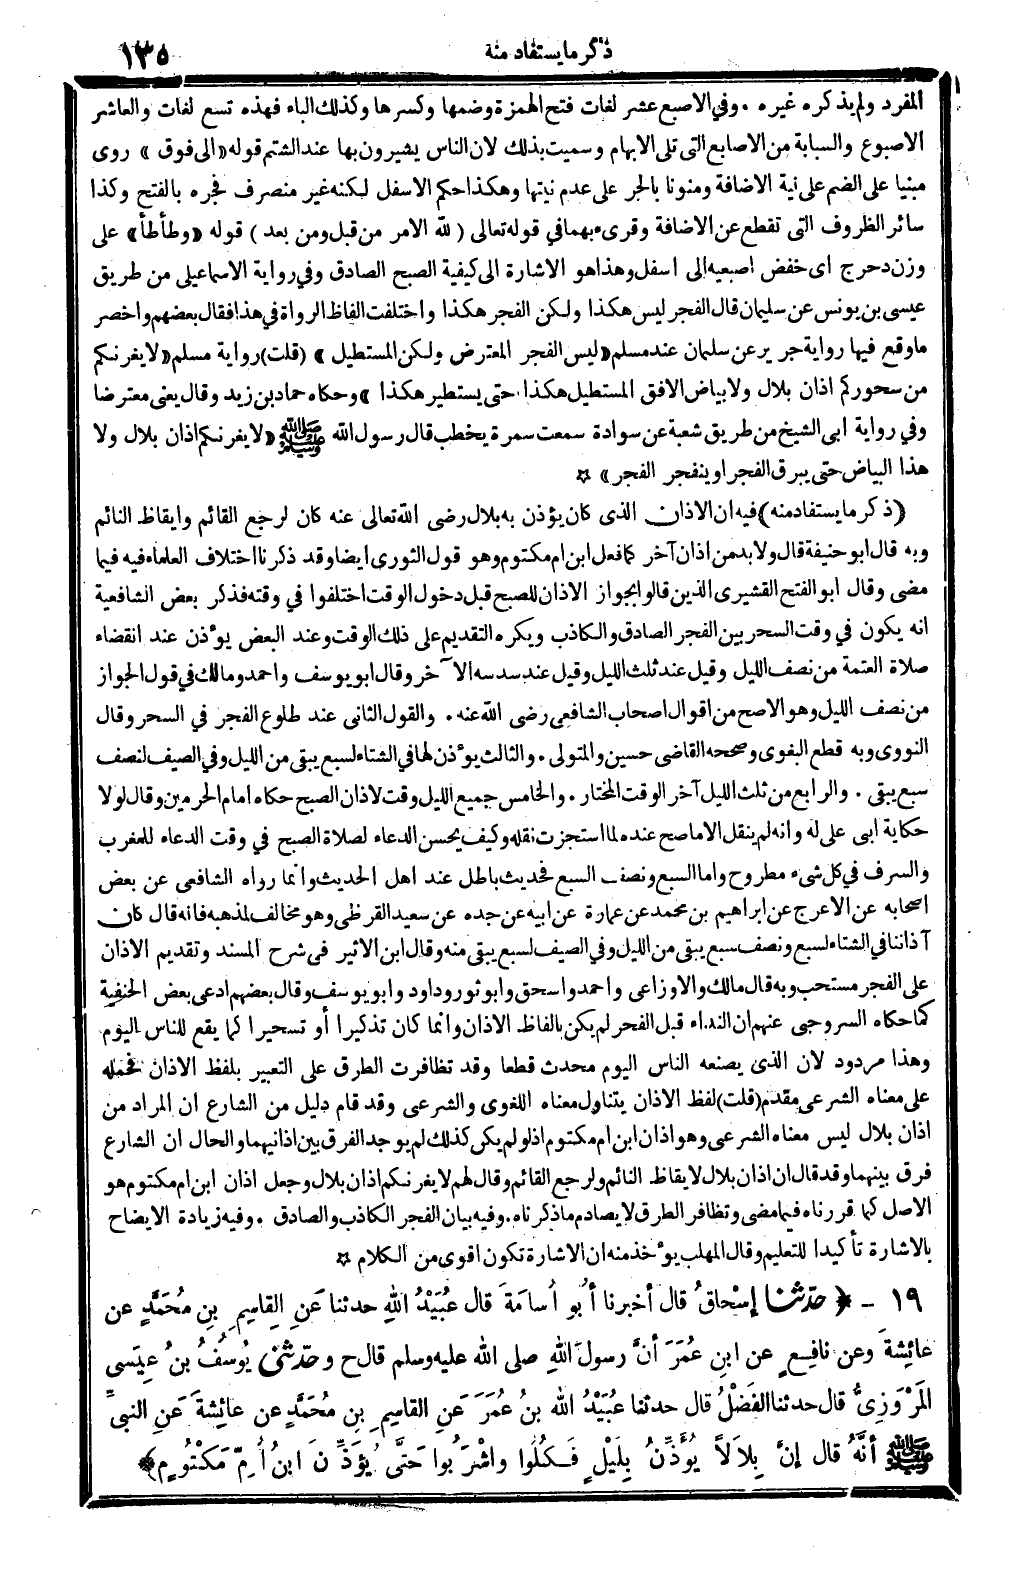 ذكر ما يستفاد منه
١٣٥
المفرد ولم يذكره غيره . وفي الاصبع عشر لغات فتح الهمزة وضمها وكسرها وكذلك الباء فهذه تسع لغات والعاشر
الاصبوع والسبابة من الاصابع التي تلى الابهام وسميت بذلك لان الناس يشيرون بها عند الشتم قوله «الى فوق» روى
مبنيا على الضم على نية الاضافة ومنونا بالجر على عدم نيتها وهكذا حكم الاسفل لكنه غير منصرف فجره بالفتح وكذا
سائر الظروف التى تقطع عن الاضافة وقرىء بهما في قوله تعالى ( لله الامر من قبل ومن بعد ) قوله «وطأطأ» على
وزن دحرج اى خفض اصبعيه إلى اسفل وهذا هو الاشارة الى كيفية الصبح الصادق وفي رواية الاسماعيلى من طريق
عيسى بن يونس عن سليمان قال الفجر ليس هكذا ولكن الفجر هكذا واختلفت الفاظ الرواة في هذا فقال بعضهم واخصر
ما وقع فيها رواية جرير عن سلمان عند مسلم «ليس الفجر المعترض ولكن المستطيل» (قلت) رواية مسلم «لا يغرنكم
من سحوركم اذان بلال ولا بياض الافق المستطيل هكذا حتى يستطير هكذا» وحكاه حماد بن زيد وقال يعنى معترضا
وفي رواية ابى الشيخ من طريق شعبة عن سوادة سمعت سمرة يخطب قال رسول الله ﷺ «لا يغرنكم اذان بلال ولا
هذا البياض حتى يبرق الفجر او ينفجر الفجر» ☆
(ذكر ما يستفاد منه) فيه ان الاذان الذى كان يؤذن به بلال رضى الله تعالى عنه كان لرجع القائم وايقاظ النائم
وبه قال ابو حنيفة قال ولا بد من اذان آخر كما فعل ابن ام مكتوم وهو قول الثورى ايضا وقد ذكرنا اختلاف العلماء فيه فيما
مضى وقال ابو الفتح القشيرى الذين قالوا بجواز الاذان للصبح قبل دخول الوقت اختلفوا في وقته فذكر بعض الشافعية
انه يكون في وقت السحر بين الفجر الصادق والكاذب ويكره التقديم على ذلك الوقت وعند البعض يؤذن عند انقضاء
صلاة العتمة من نصف الليل وقيل عند ثلث الليل وقيل عند سدسه الآخر وقال ابو يوسف واحمد ومالك في قول الجواز
من نصف الليل وهو الاصح من اقوال اصحاب الشافعى رضى الله عنه . والقول الثانى عند طلوع الفجر في السحر وقال
النووى وبه قطع البغوى وصححه القاضى حسين والمتولى . والثالث يؤذن لها في الشتاء لسبع يبقى من الليل وفي الصيف لنصف
سبع يبقى . والرابع من ثلث الليل آخر الوقت المختار . والخامس جميع الليل وقت لاذان الصبح حكاه امام الحرمين وقال لولا
حكاية ابى على له وانه لم ينقل الا ما صح عنده لما استجزت نقله وكيف يحسن الدعاء لصلاة الصبح في وقت الدعاء للمغرب
والسرف في كل شىء مطروح واما السبع ونصف السبع فحديث باطل عند اهل الحديث وانما رواه الشافعى عن بعض
اصحابه عن الاعرج عن ابراهيم بن محمد عن عمارة عن ابيه عن جده عن سعيد القرظى وهو مخالف لمذهبه فانه قال كان
آذاننا في الشتاء لسبع ونصف سبع يبقى من الليل وفي الصيف لسبع يبقى منه وقال ابن الاثير فى شرح المسند وتقديم الاذان
على الفجر مستحب وبه قال مالك والاوزاعى واحمد واسحق وابو ثور وداود وابو يوسف وقال بعضهم ادعى بعض الحنفية
كما حكاه السروجى عنهم ان النداء قبل الفجر لم يكن بالفاظ الاذان وانما كان تذكيرا أو تسحيرا كما يقع للناس اليوم
وهذا مردود لان الذى يصنعه الناس اليوم محدث قطعا وقد تظافرت الطرق على التعبير بلفظ الاذان فحمله
على معناه الشرعى مقدم (قلت) لفظ الاذان يتناول معناه اللغوى والشرعى وقد قام دليل من الشارع ان المراد من
اذان بلال ليس معناه الشرعى وهو اذان ابن ام مكتوم اذ لو لم يكن كذلك لم يوجد الفرق بين اذانيهما والحال ان الشارع
فرق بينهما وقد قال ان اذان بلال لايقاظ النائم ولرجع القائم وقال لهم لا يغرنكم اذان بلال وجعل اذان ابن ام مكتوم هو
الاصل كما قررناه فيما مضى وتظافر الطرق لا يصادم ما ذكرناه . وفيه بيان الفجر الكاذب والصادق . وفيه زيادة الايضاح
بالاشارة تأكيدا للتعليم وقال المهلب يؤخذ منه ان الاشارة تكون اقوى من الكلام ☆
١٩ - ﴿ حَدَّثَنَا إِسْحَاقُ قال أخبرنا أَبُو أُسَامَةَ قال عُبَيْدُ اللهِ حدثنا عَنِ القَاسِمِ بنِ مُحَمَّدٍ عن
عائِشَةَ وعن نافِعٍ عن ابنِ عُمَرَ أَنَّ رسولَ اللهِ صلى الله عليه وسلم قال ح وحَدَّثَنى يُوسُفُ بنُ عِيسَى
المَرْوَزِيُّ قال حدثنا الفَضْلُ قال حدثنا عُبَيْدُ الله بنُ عُمَرَ عَنِ القاسِمِ بنِ مُحَمَّدٍ عن عائِشَةَ عَنِ النبىِّ
ﷺ أَنَّهُ قال إِنَّ بِلَالاً يُؤَذِّنُ بِلَيْلٍ فَكُلُوا واشْرَبُوا حَتَّى يُؤَذِّنَ ابنُ أُمِّ مَكْتُومٍ ﴾